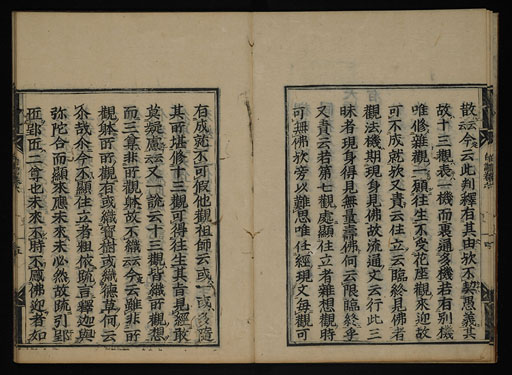 散云云今云此判釋有其由欤不契愚義其
故十三觀表一機而裏通多機若有別機
唯修雜觀一願往生不受花座觀來迎故
可不成就欤又責云住立云臨終見佛者
觀法機期現身見佛故流通文云行此三
昧者現身得見無量壽佛何云限臨終乎
又責云若第七觀處顯住立者雜想觀時
可無佛欤旁以難思唯任經現文每觀可
有成就不可假他觀祖師云或一或多隨
其所堪修十三觀可得往生其旨見經敢
莫疑慮云云又一說云十三觀皆織所觀想
而三輩非所觀躰故不織云云今云雖非所
觀躰所所觀有或織寶樹或織德草何云
尒哉尒今不顯住立者粗依疏言釋迦與
弥陀合而顯來應未來未必然故疏引郢
匠郢匠二尊也未來不時不感佛迎者如